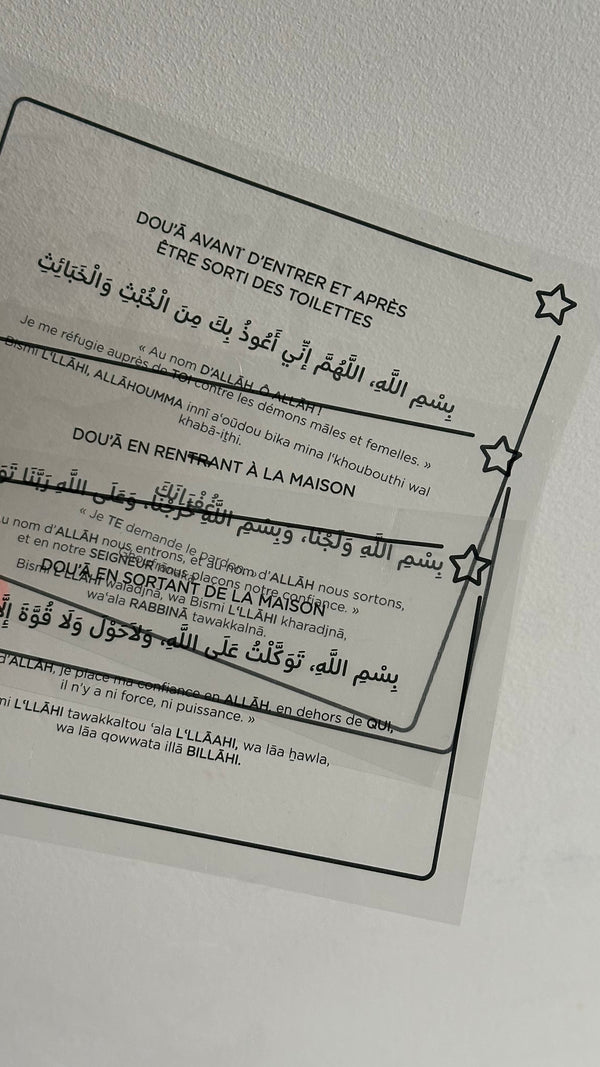 DOU'Ā AVANT D'ENTRER ET APRÈS
ÊTRE SORTI DES TOILETTES
بِسْمِ اللَّهِ، اللَّهُمَّ إِنِّي أَعُوذُ بِكَ مِنَ الْخُبْثِ وَالْخَبَائِثِ
« Au nom D'ALLĀH, Ô ALLĀH !
Je me réfugie auprès de TOI contre les démons mâles et femelles. »
Bismi L'LLĀHI, ALLĀHOUMMA innī a'oūdou bika mina l'khoubouthi wal
khabā-iṯhi.
غُفْرَانَكَ
« Je TE demande le Pardon. »
DOU'Ā EN RENTRANT À LA MAISON
بِسْمِ اللَّهِ وَلَجْنَا، وَبِسْمِ اللَّهِ خَرَجْنَا، وَعَلَى اللَّهِ رَبَّنَا
u nom d'ALLĀH nous entrons, et au nom d'ALLĀH nous sortons,
et en notre SEIGNEUR nous plaçons notre confiance. »
Bismi L'LLĀHI waladjnā, wa Bismi L'LLĀHI kharadjnā,
wa'ala RABBINĀ tawakkalnā.
DOU'Ā EN SORTANT DE LA MAISON
بِسْمِ اللَّهِ، تَوَكَّلْتُ عَلَى اللَّهِ، وَلَاحَوْلَ وَلَا قُوَّةَ
d'ALLĀH, je place ma confiance en ALLĀH, en dehors de QUI,
il n'y a ni force, ni puissance. »
mi L'LLĀHI tawakkaltou 'ala L'LLĀAHI, wa lāa ẖawla,
wa lāa qowwata illā BILLĀHI.